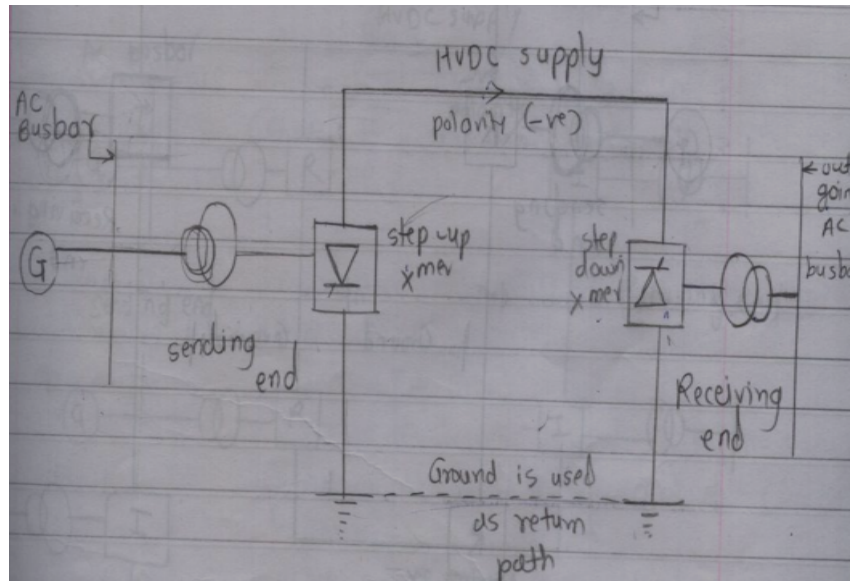 HVDC supply
polarity (-ve)
AC
Busbar
G
step-up
Xmer
sending
end
step
down
Xmer
out
going
AC
busba
Receiving
end
Ground is used
as return
path